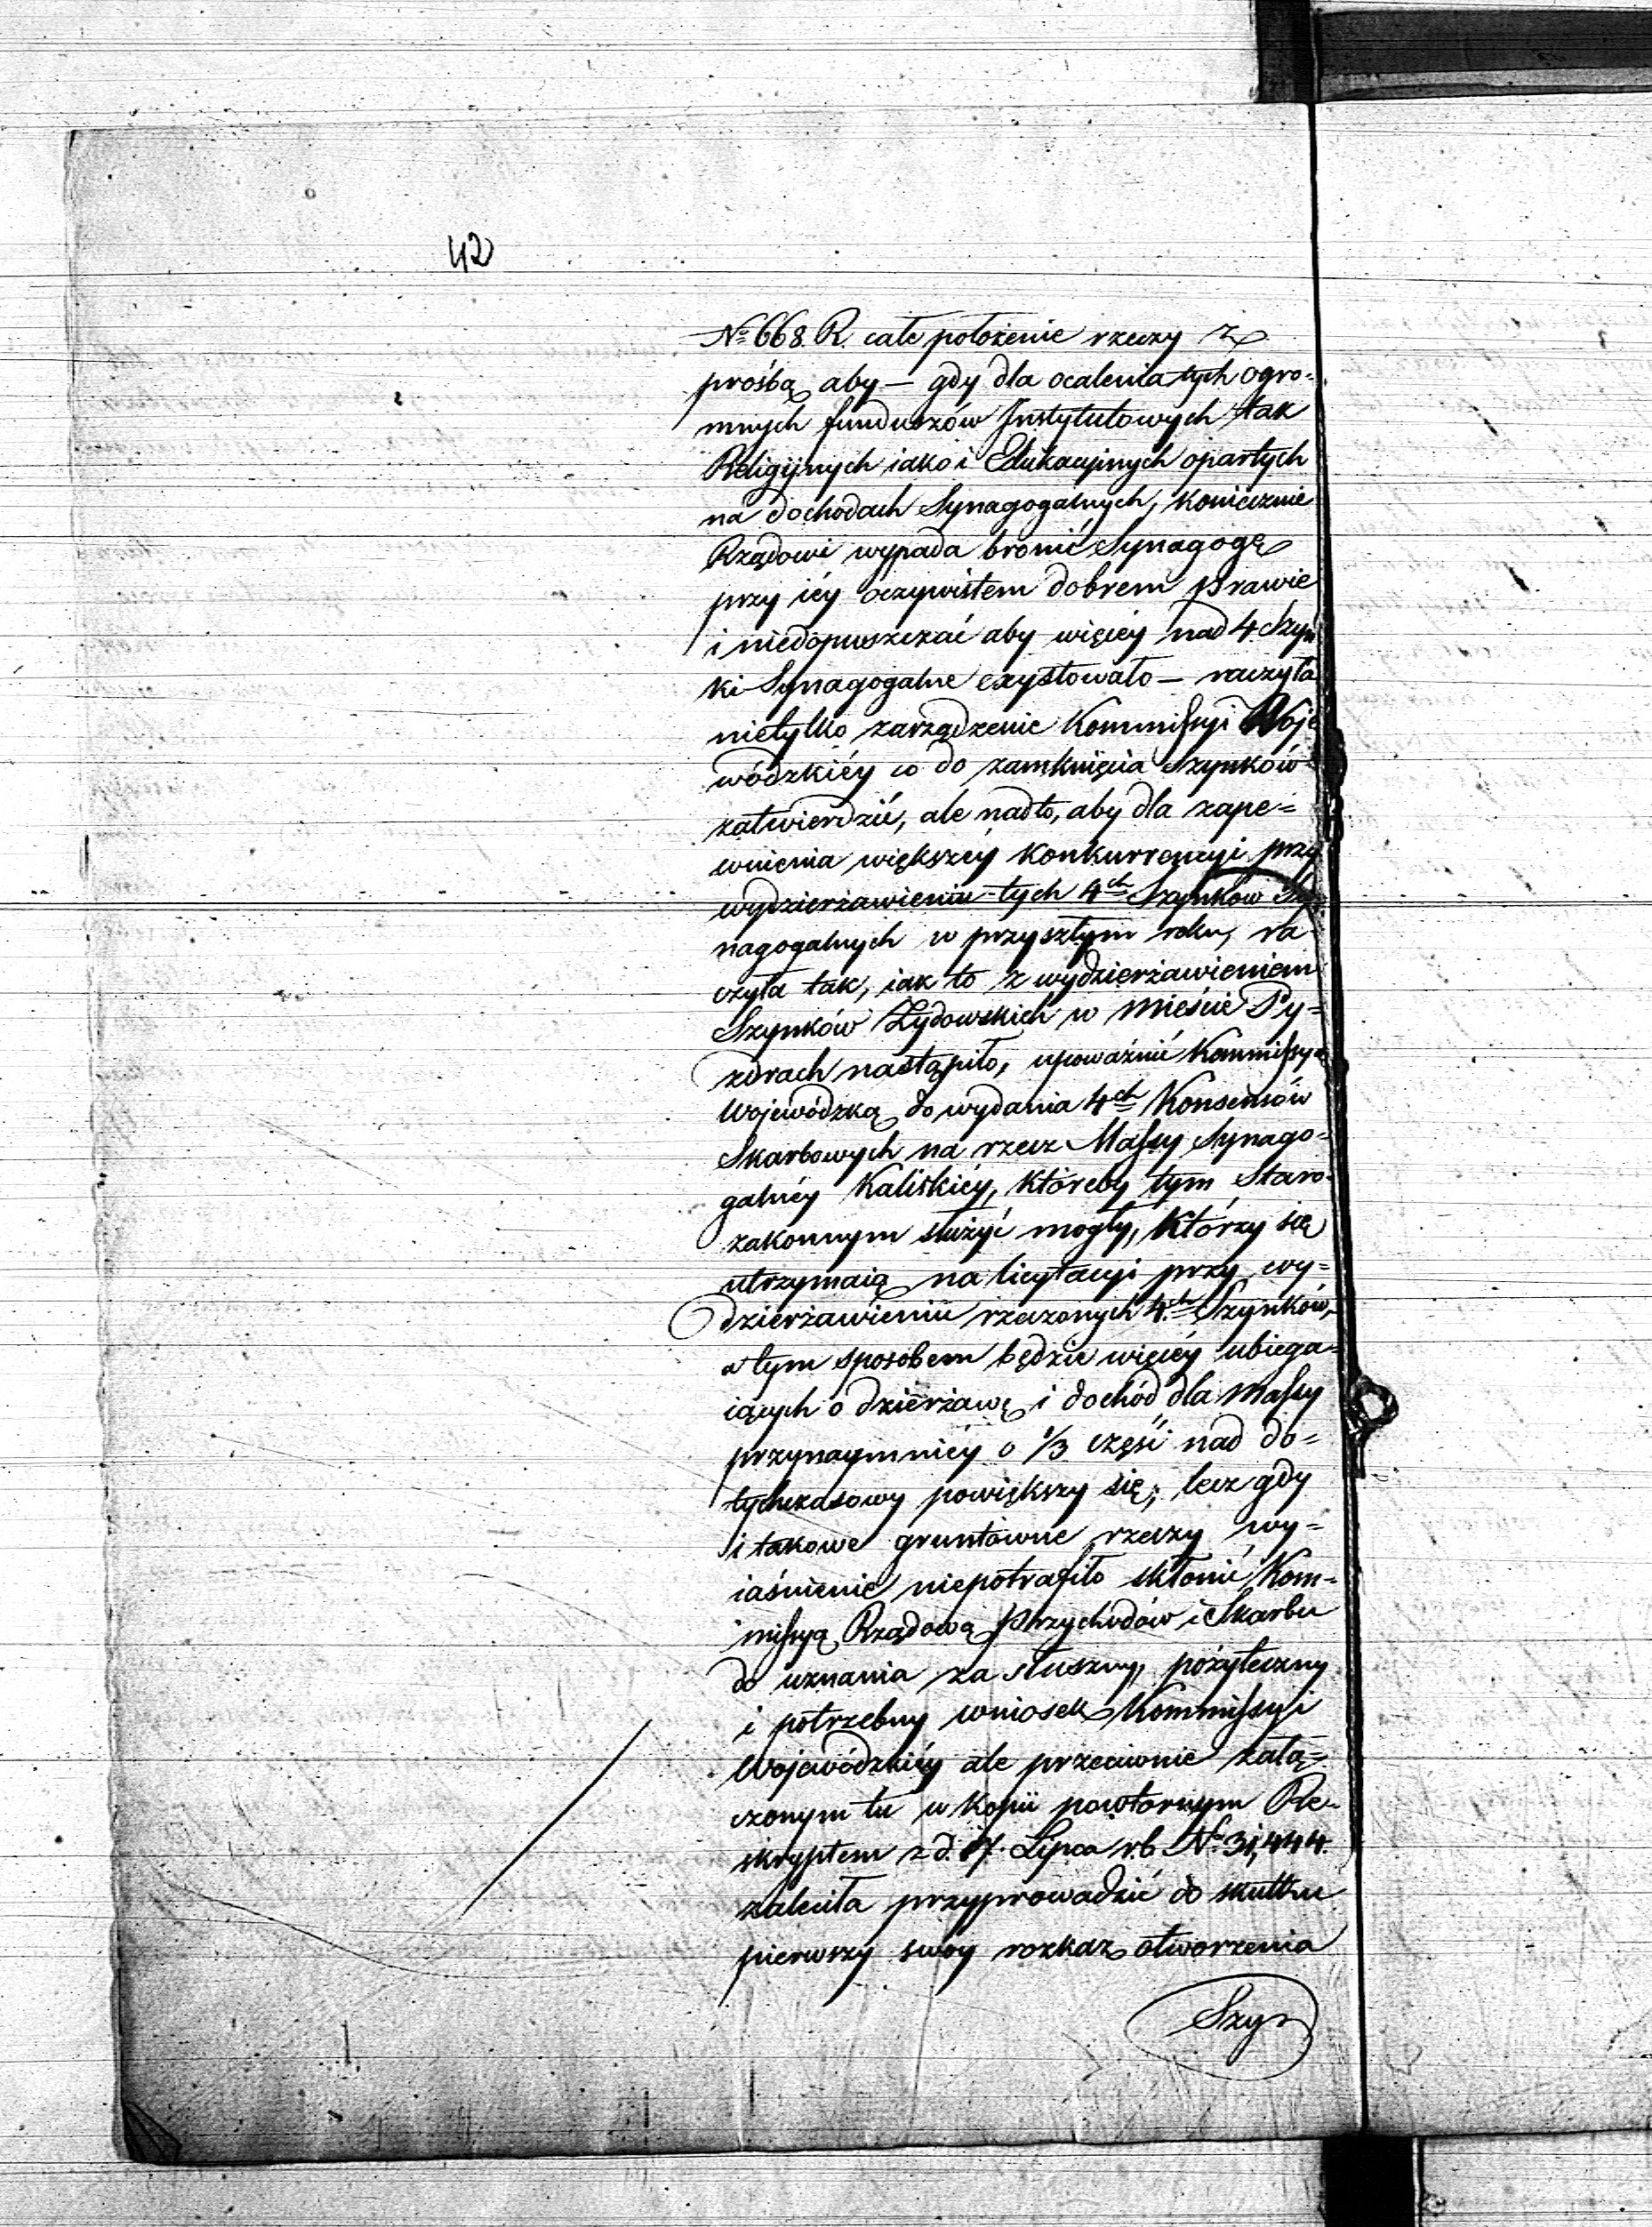 42
№ 668. R. całe położenie rzeczy z
prośbą aby — gdy dla ocalenia tych ogro-
mnych funduszów Instytutowych tak
Religijnych iako i Edukacyinych opartych
na dochodach Synagogalnych, koniecznie
Rządowi wypada bronić Synagogę
przy iéy oczywistem dobrem prawie
i niedopuszczać aby więcéy nad 4. Szyn
ki Synagogalne exystowało — raczyła
nietylko zarządzenie Kommissyi Woje
wódzkiéy co do zamknięcia Szynków
zatwierdzić, ale nadto, aby dla zape=
wnienia większéy konkurrencyi przy
wydzierżawieniu tych 4ch Szynków Sy
nagogalnych w przyszłym roku, ra-
czyła tak, iak to z wydzierżawieniem
Szynków Żydowskich w mieście Py=
zdrach nastąpiło, upoważnić Kommissyą
Wojewódzką do wydania 4ch Konsensów
Skarbowych na rzecz Massy Synago-
galnéy Kaliskiéy, któreby tym Staro-
zakonnym służyć mogły, którzy się
utrzymaią na licytacyi przy wy=
dzierżawieniu rzeczonych 4ch Szynków,
a tym sposobem będzie więcéy ubiega-
iących o dzierżawę i dochód dla Massy
przynaymniéy o 1/3 część nad do=
tychczasowy powiększy się; lecz gdy
i takowe gruntowne rzeczy wy=
iaśnienie niepotrafiło skłonić Kom-
missyą Rządową Przychodów i Skarbu
do uznania za słuszny, pożyteczny
i potrzebny wniosek Kommissyi
Wojewódzkiéy ale przeciwnie załą=
czonym tu w kopii powtórnym Re-
skryptem z d. 17. Lipca r.b. № 31,444.
zaleciła przyprowadzić do skutku
pierwszy swóy rozkaz otworzenia
Szyn